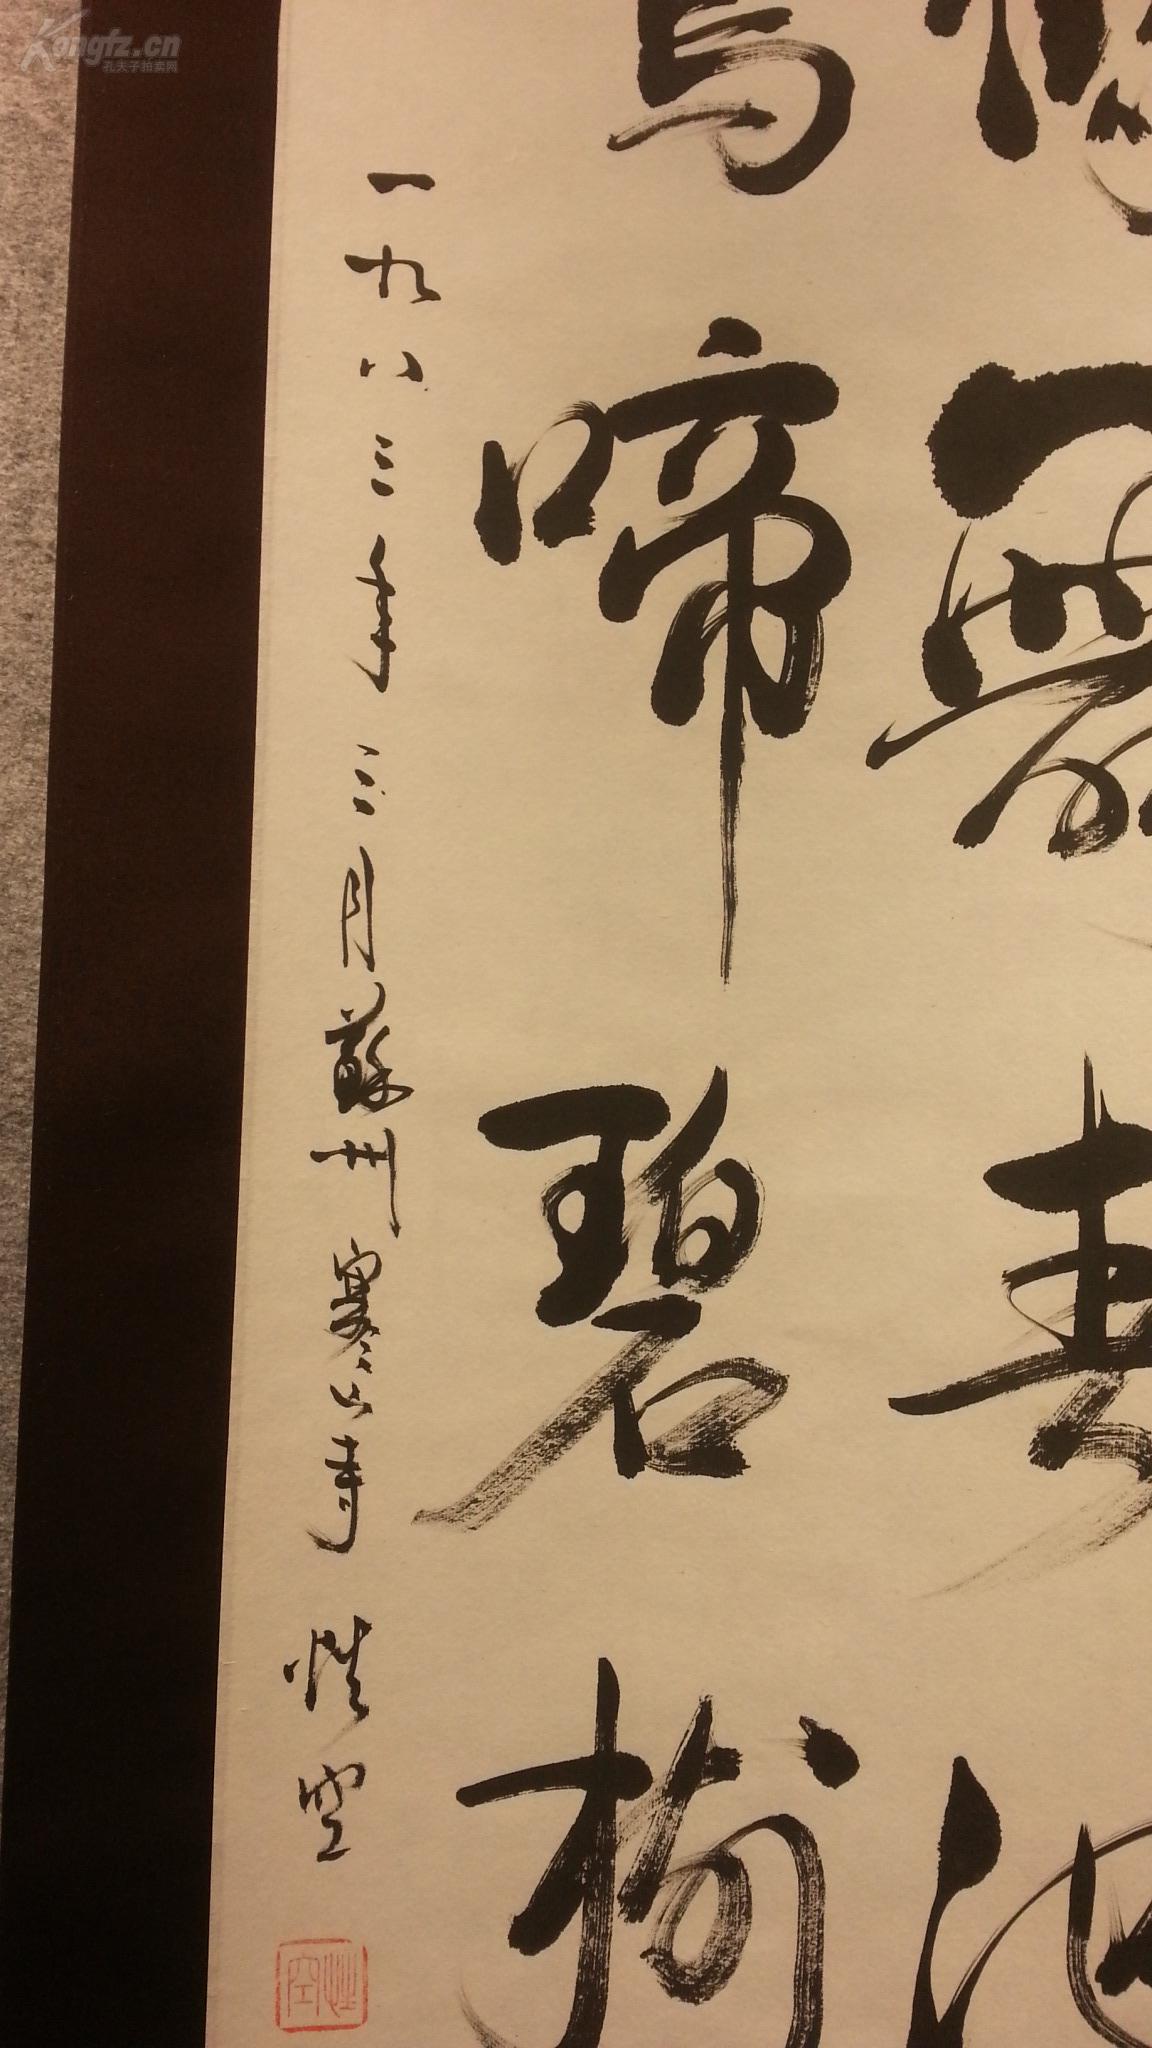 春池
鸟啼碧树
一九八三年三月蘇州寒山寺 性空
性空
Kongfz.cn
孔夫子拍卖网